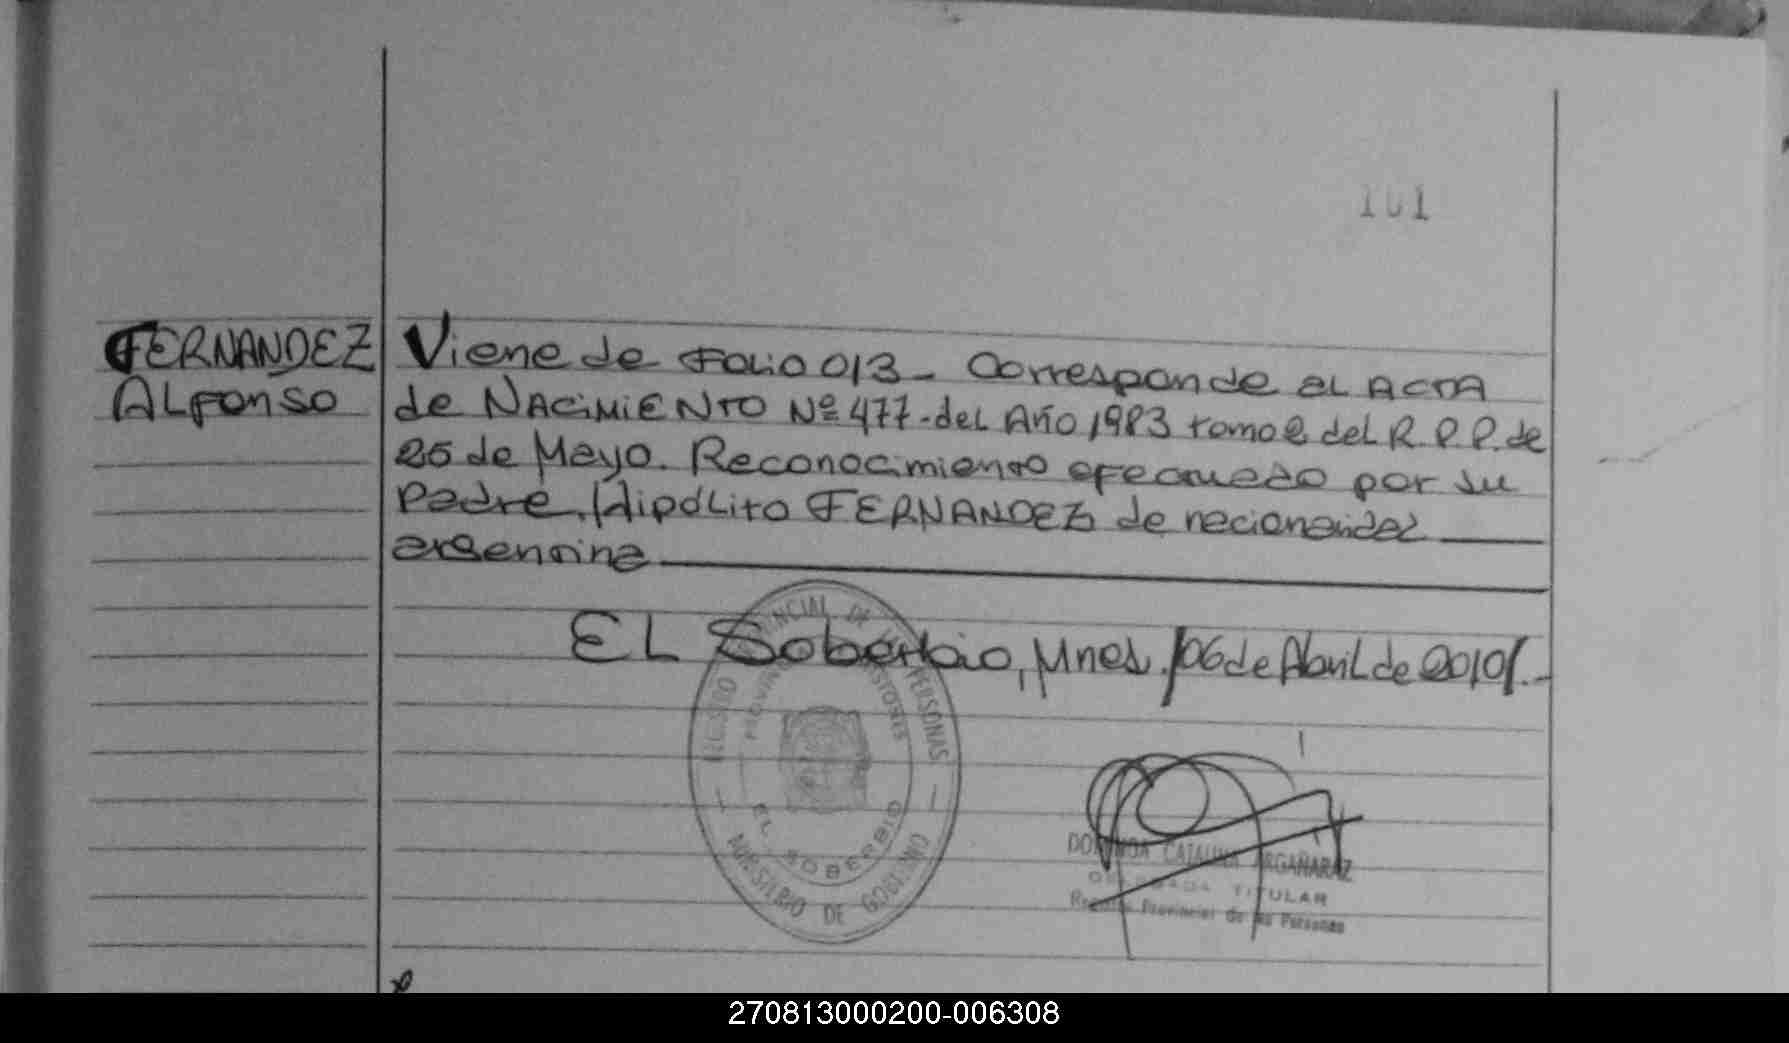 101
FERNANDEZ
Alfonso
Viene de Folio 013 - Corresponde al Acta
de NACIMIENTO Nº 477 - del Año 1983 tomo 2 del R.P.P. de
25 de Mayo. Reconocimiento efectuado por su
Padre, Hipólito FERNANDEZ de nacionalidad
argentina
El Soberbio, Mnes. 06 de Abril de 2010.-
REGISTRO PROVINCIAL DE LAS PERSONAS
PROVINCIA MISIONES
EL SOBERBIO
MINISTERIO DE GOBIERNO
CATALINA ARGAÑARAZ
DELEGADA TITULAR
Registro Provincial de las Personas
270813000200-006308